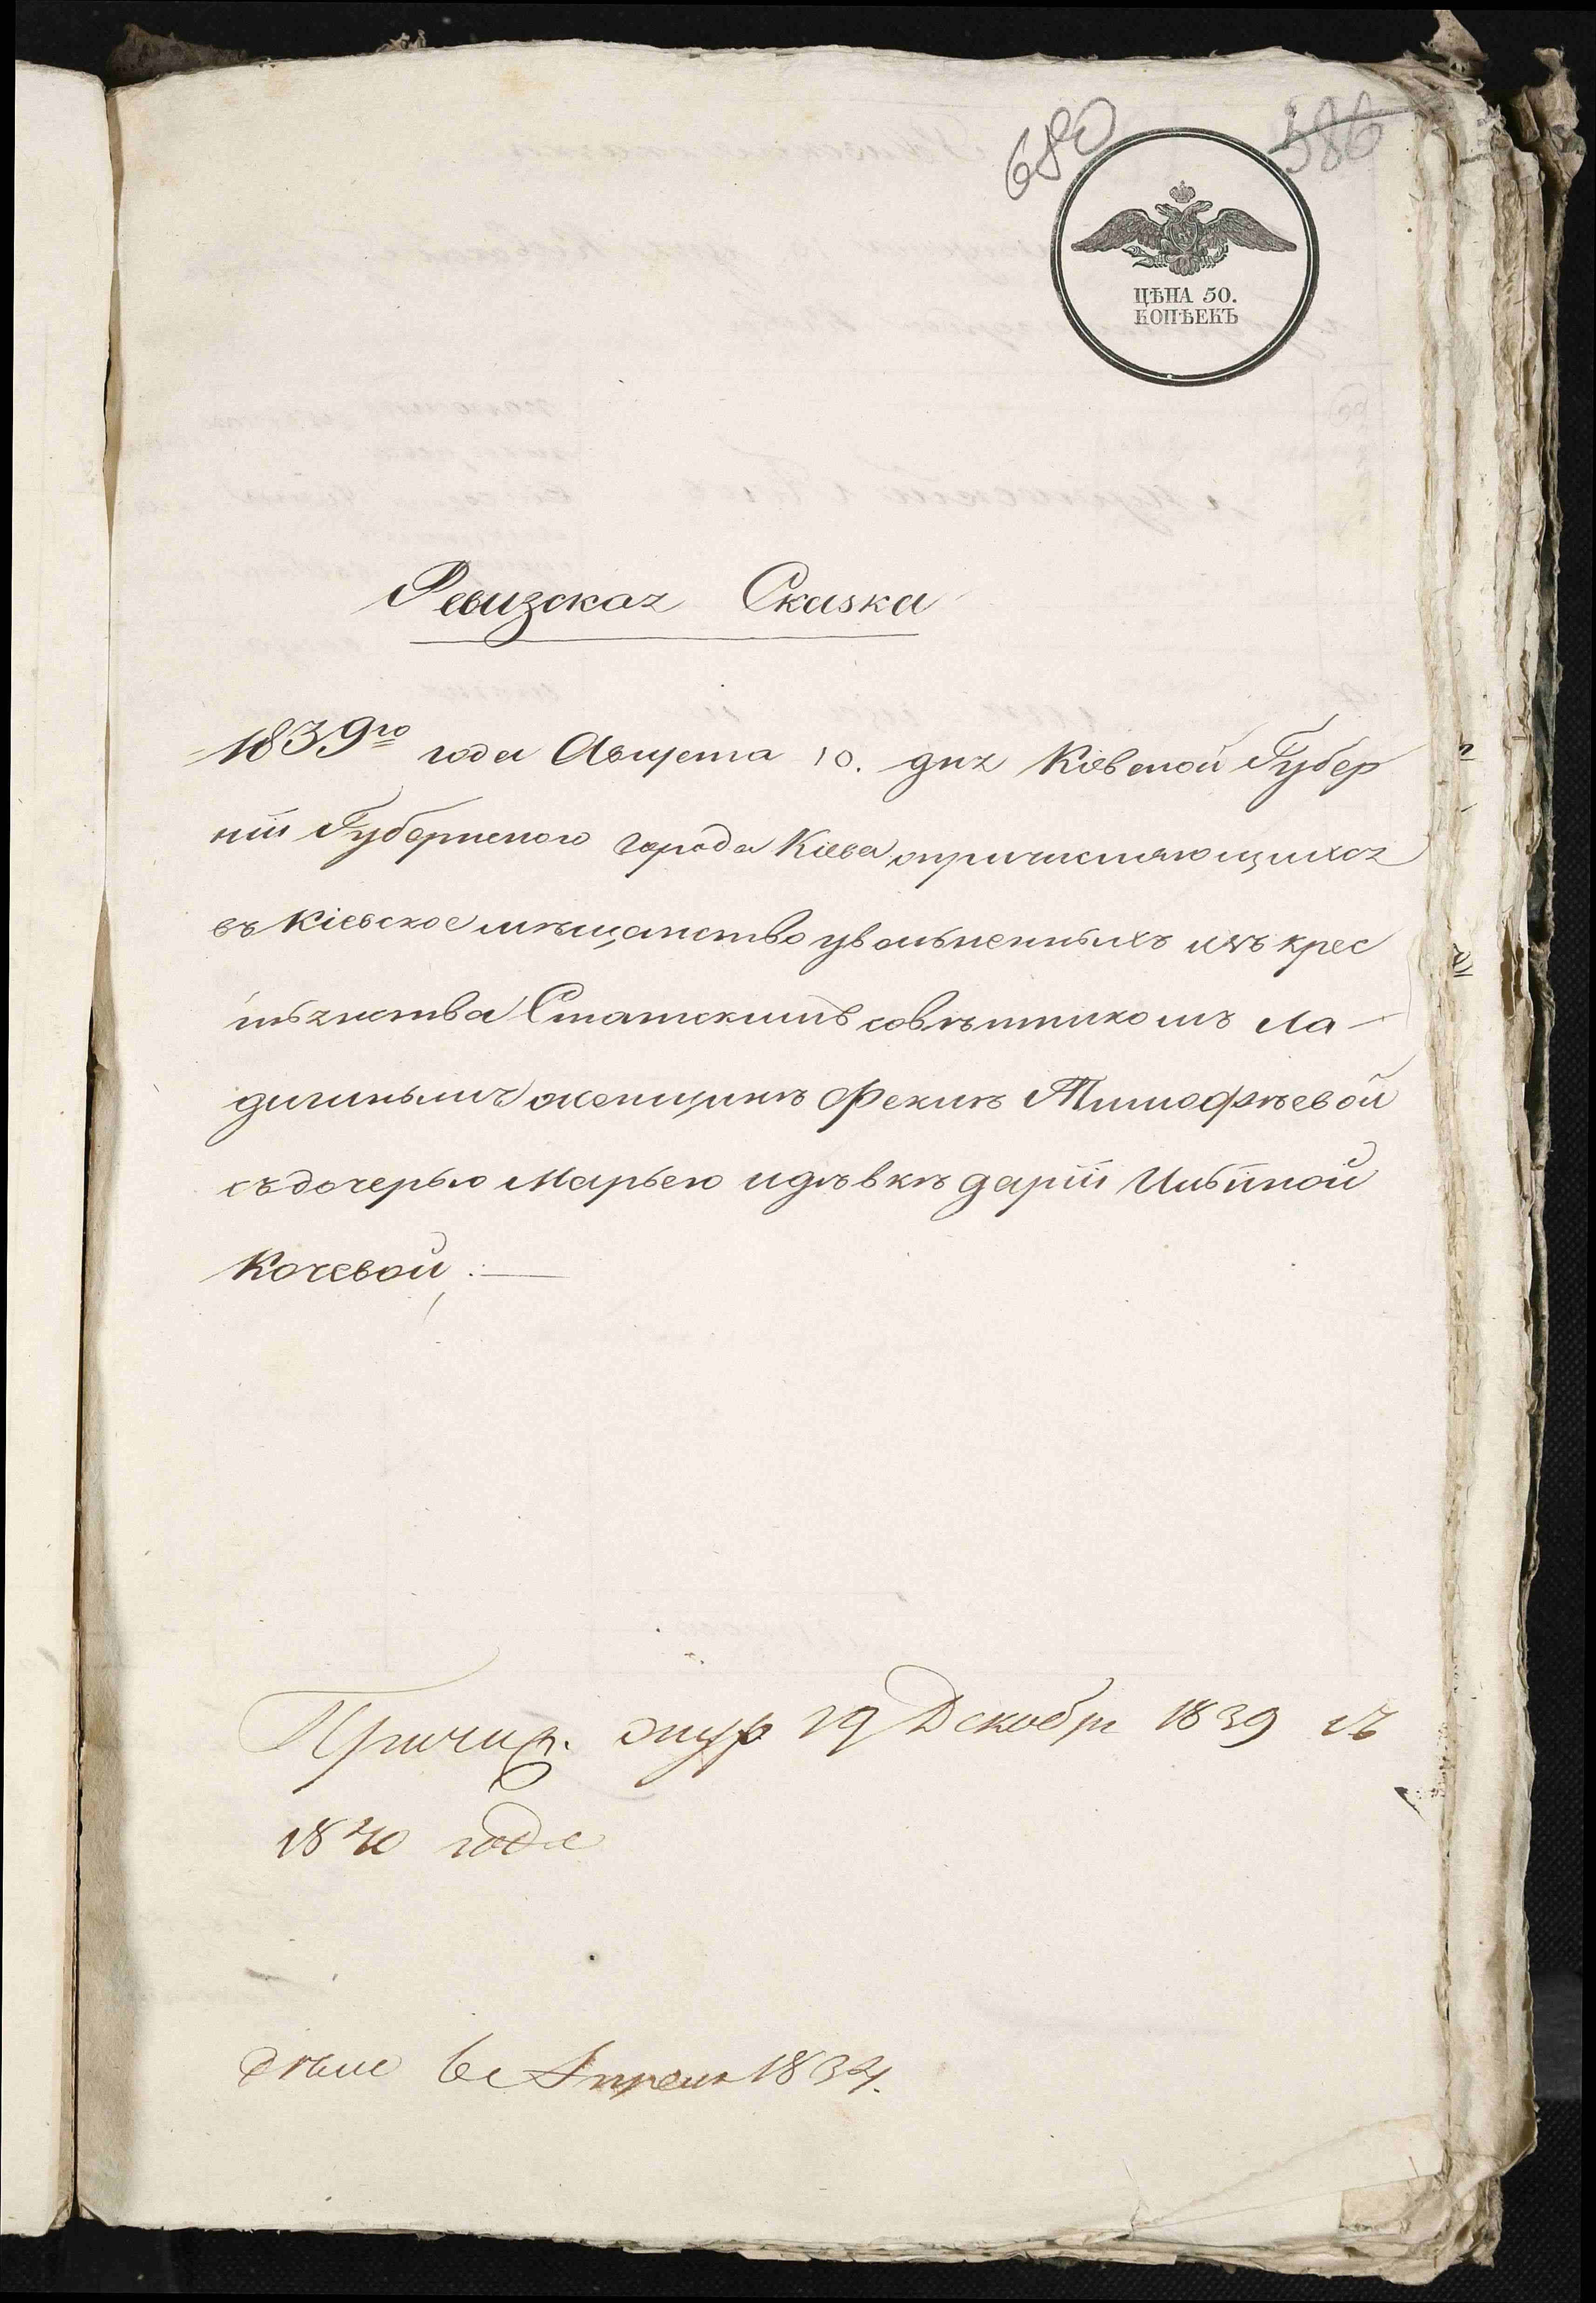 680
386
ЦѢНА 50.
КОПѢЕКЪ
Ревизская Сказка
1839го года Августа 10. дня Кіевской Губер
ніи Губернского города Кіева опричисляющихся
въ Кіевское мѣщанство увольненныхъ изъ крес
тьянства Статскимъ совѣтникомъ Ла-
дигинымъ женщинѣ Фекли Тимофѣевой
съ дочерью Марьею и дѣвкѣ Дарііи Ильиной
Кочевой.
Причис. 19 Декабр 1839 съ
1840 года
дѣло Апреля 1834.